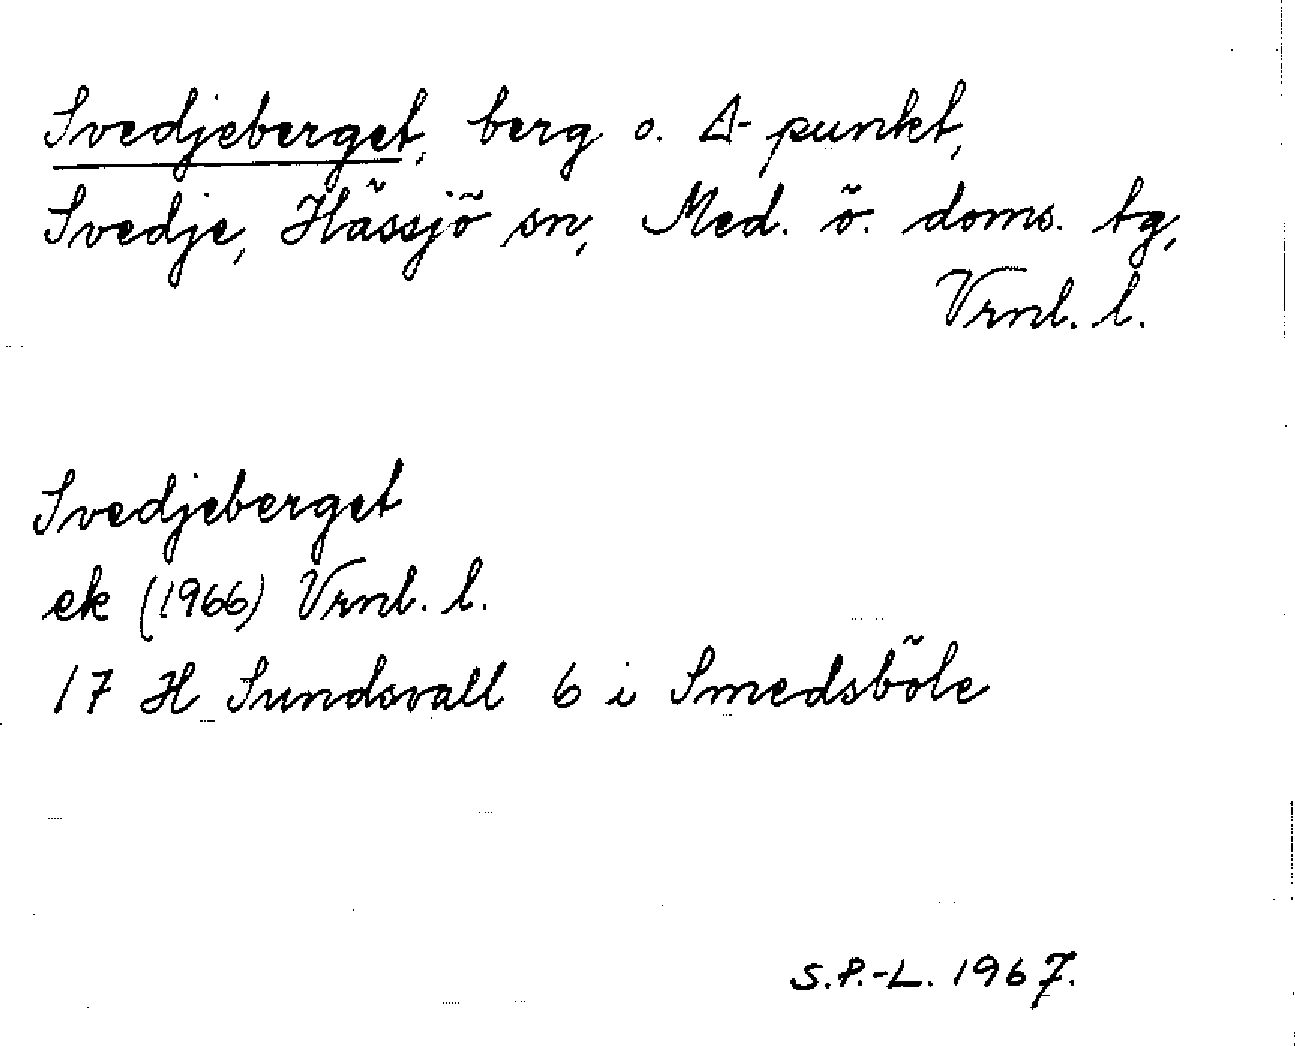 Svedjeberget, berg o. Δ-punkt,
Svedje, Hässjö sn, Med. ö. doms. tg,
Vrnl. l.
Svedjeberget
ek (1966) Vrnl. l.
17 H Sundsvall 6 i Smedsböle
S.P.-L. 1967.